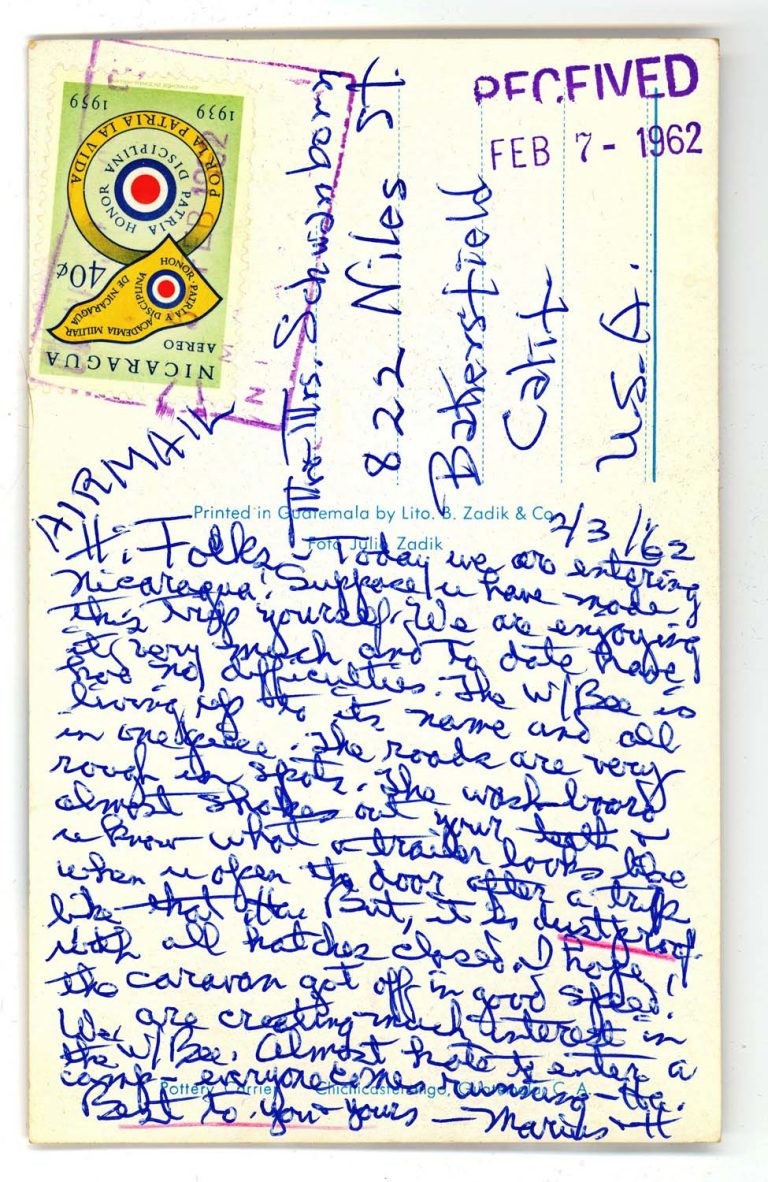 RECEIVED
FEB 7 - 1962
1939 1959
POR LA PATRIA LA VIDA
PATRIA HONOR DISCIPLINA
40¢
HONOR · PATRIA Y DISCIPLINA
ACADEMIA MILITAR DE NICARAGUA
AEREO
NICARAGUA
AIRMAIL
Mrs. Schwanborn
822 Niles St.
Bakersfield
Calif.
U.S.A.
Printed in Guatemala by Lito. B. Zadik & Co.
Foto Julio Zadik
2/3/'62
Hi Folks – Today we are entering
Nicaragua. Suppose u have made
this trip yourself. We are enjoying
it very much and to date have
had no difficulties. The W/Bee is
living up to its name and all
in one piece. The roads are very
rough in spots. The washboard
almost shakes out your teeth &
u know what a trailer looks like
when u open the door after a trip
like that But, it is dustproof
with all hatches closed. I hope
the caravan got off in good
We are creating much interest in
the W/Bee. Almost hate to enter a
camp – everyone comes running –
Best to you – yours –
Pottery Carrier Chichicastenango, Guatemala, C. A.